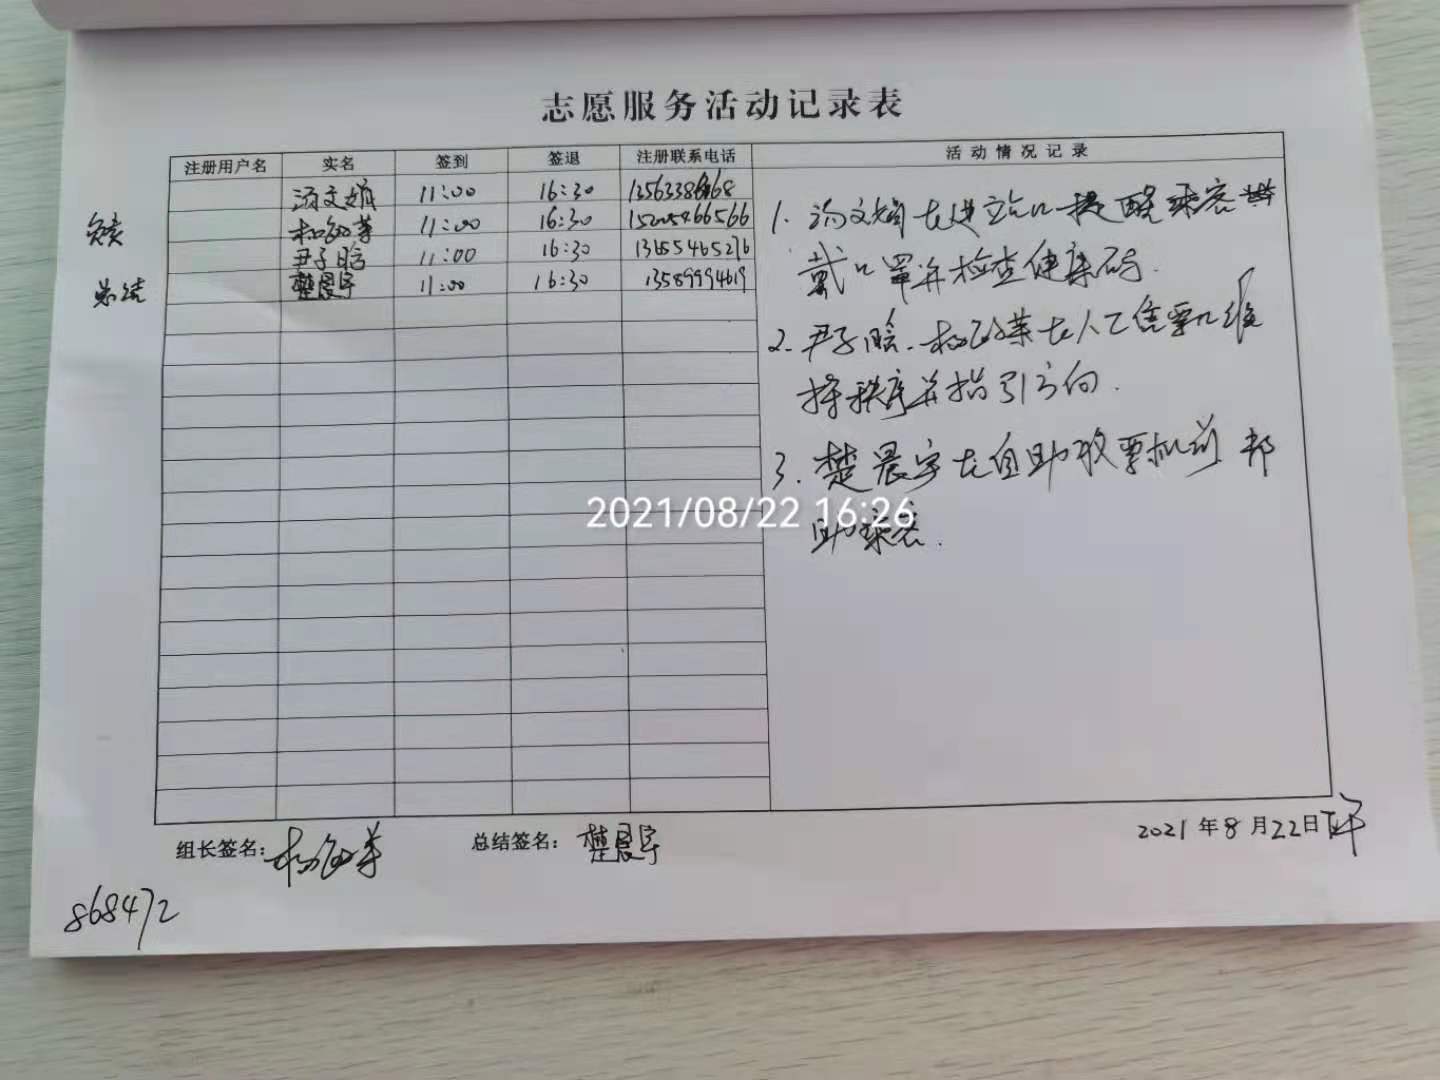 志愿服务活动记录表
注册用户名 实名 签到 签退 注册联系电话 活动情况记录
汤文娟 11:00 16:30
负责 11:00 16:30 15205466566
尹子晗 11:00 16:30 13655465276
总结 楚晨宇 11:00 16:30 13589994619
1. 汤文娟在进站口提醒乘客
戴口罩并检查健康码.
2. 尹子晗、在人工售票口维
持秩序并指引方向.
3. 楚晨宇在自助取票机前帮
助乘客.
2021/08/22 16:26
组长签名: 总结签名: 楚晨宇 2021年8月22日下午
868472